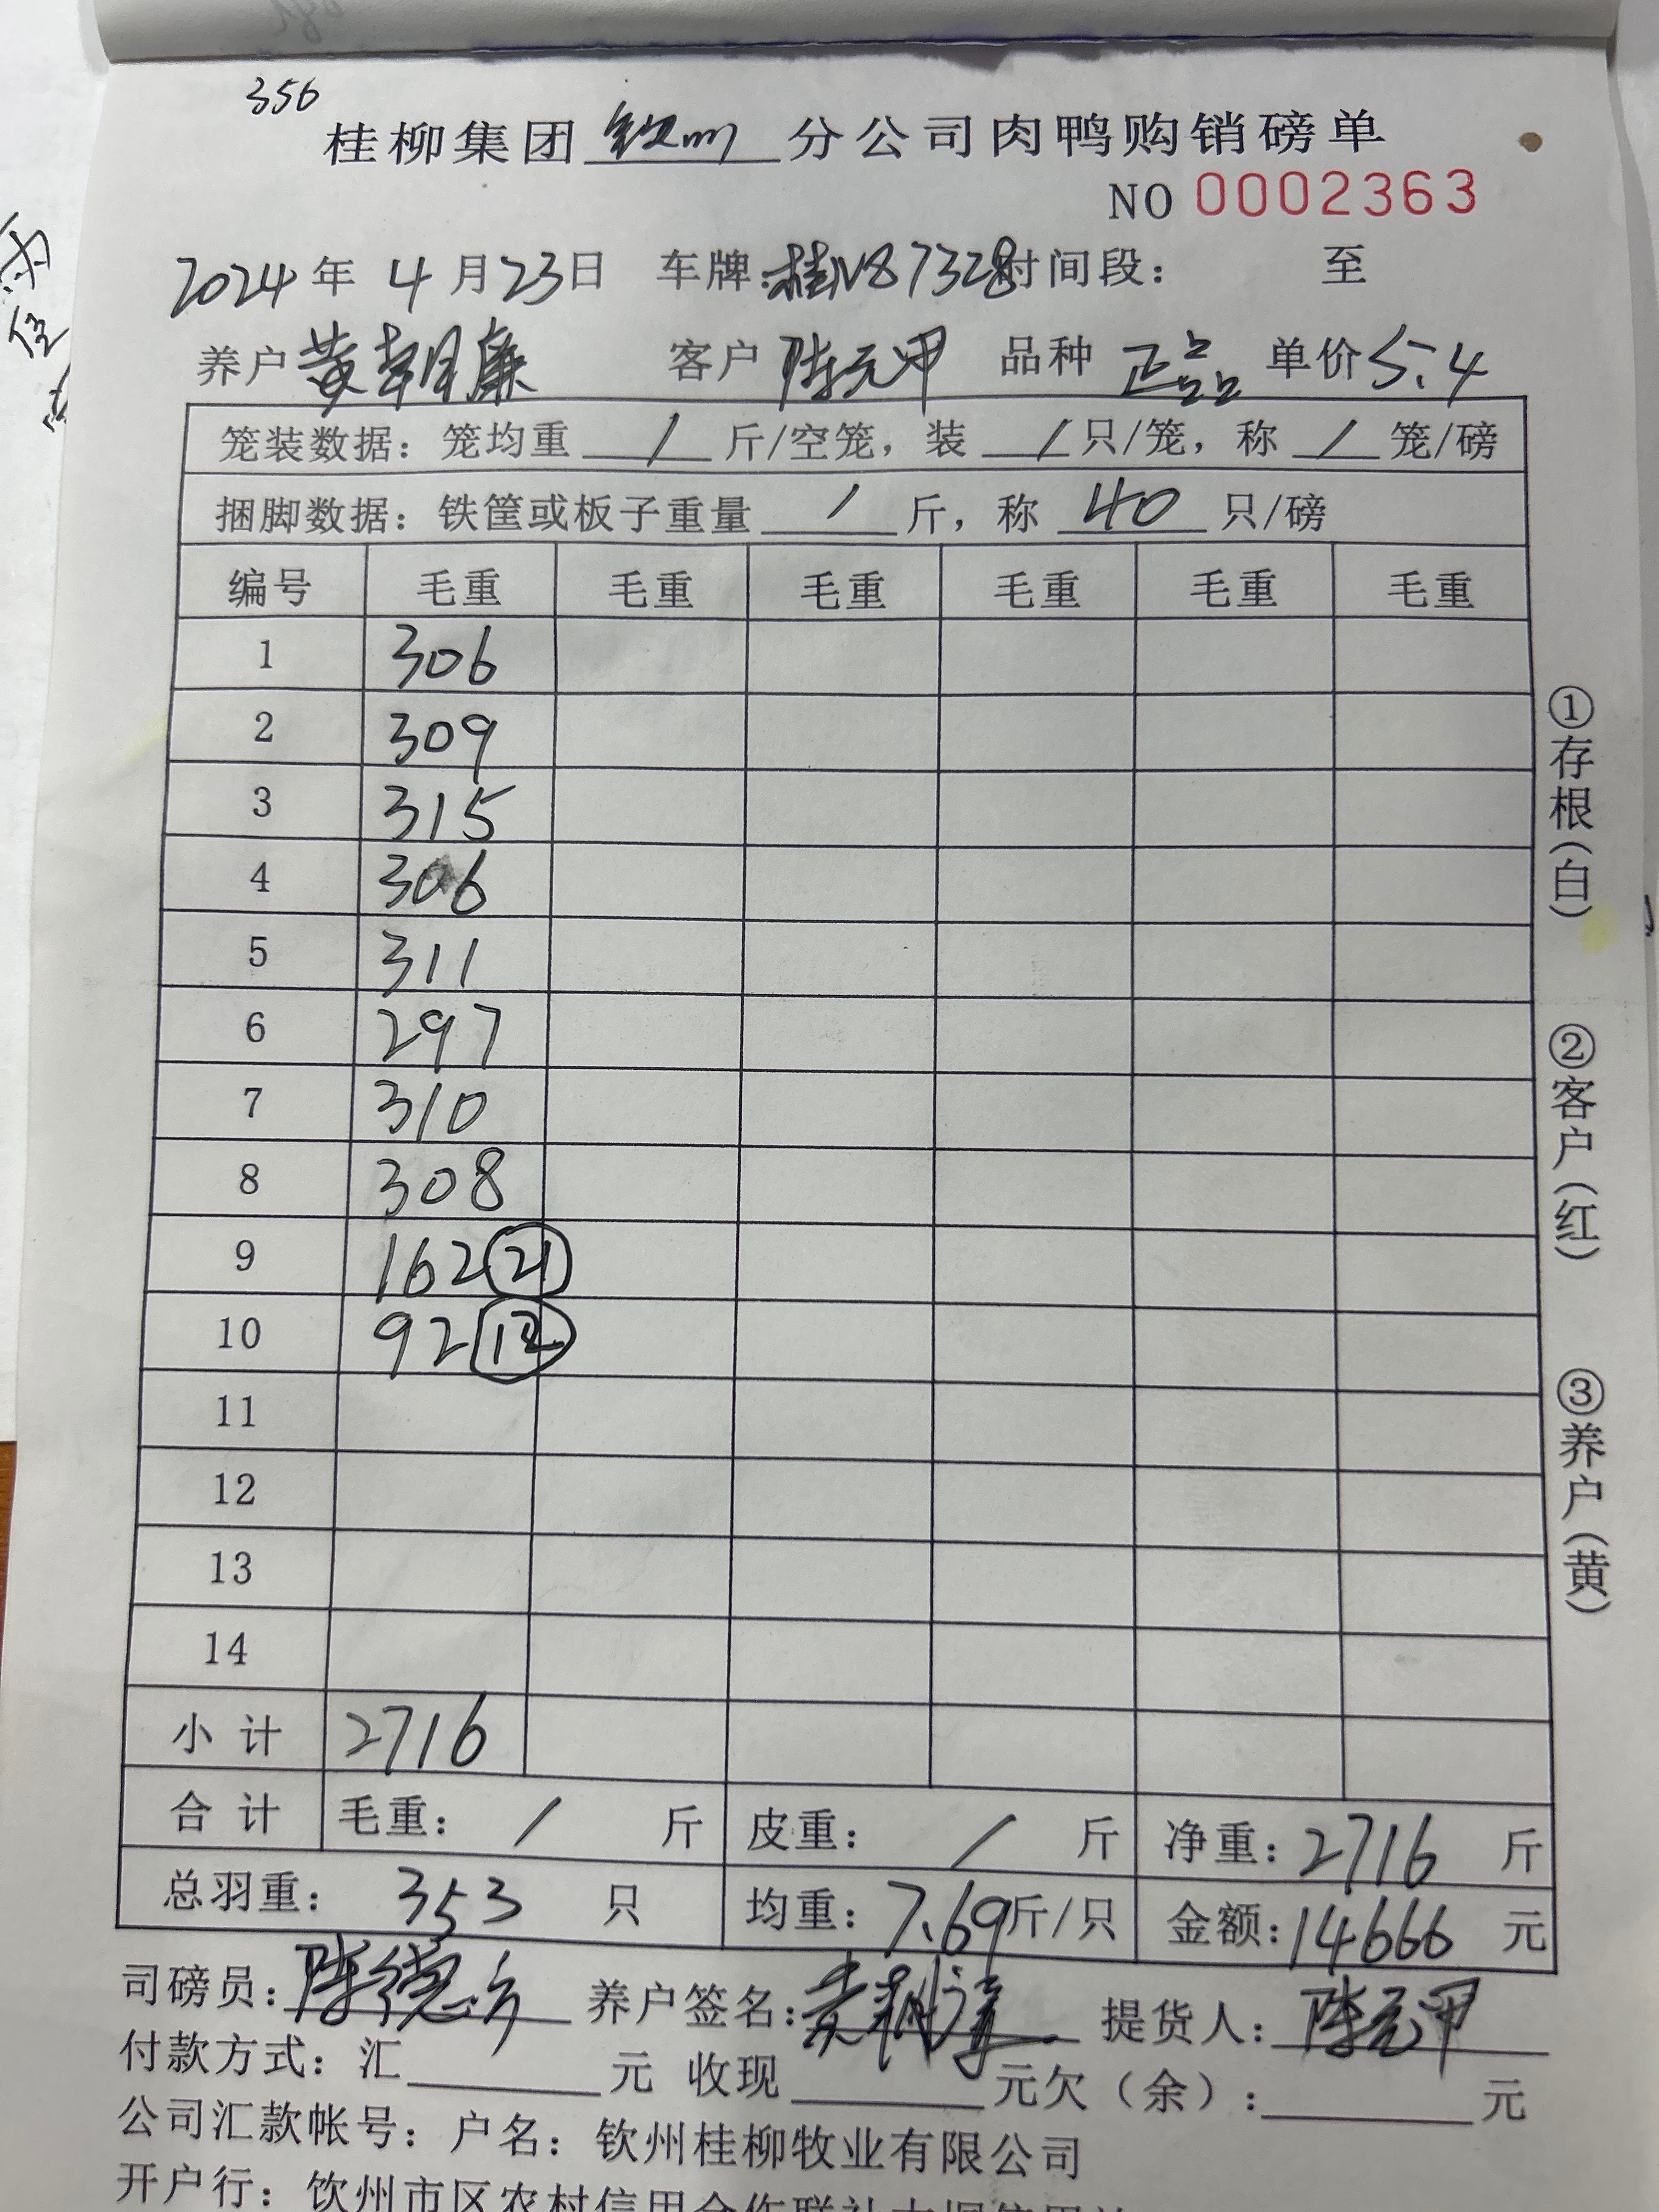 356
桂柳集团 钦州 分公司肉鸭购销磅单
NO 0002363
2024 年 4 月 23 日 车牌:桂N87328 时间段: 至
养户 黄朝廉 客户 陈元甲 品种 正品 单价 5.4
笼装数据: 笼均重 / 斤/空笼, 装 / 只/笼, 称 / 笼/磅
捆脚数据: 铁筐或板子重量 / 斤, 称 40 只/磅
编号 毛重 毛重 毛重 毛重 毛重 毛重
1 306
2 309
3 315
4 306
5 311
6 297
7 310
8 308
9 162 21
10 92 12
11
12
13
14
小计 2716
合计 毛重: / 斤 皮重: / 斤 净重: 2716 斤
总羽重: 353 只 均重: 7.69 斤/只 金额: 14666 元
司磅员: 陈德 养户签名: 提货人: 陈元甲
付款方式: 汇 元 收现 元欠(余): 元
公司汇款帐号: 户名: 钦州桂柳牧业有限公司
开户行: 钦州市区农村信用合作联社
①存根(白)
②客户(红)
③养户(黄)